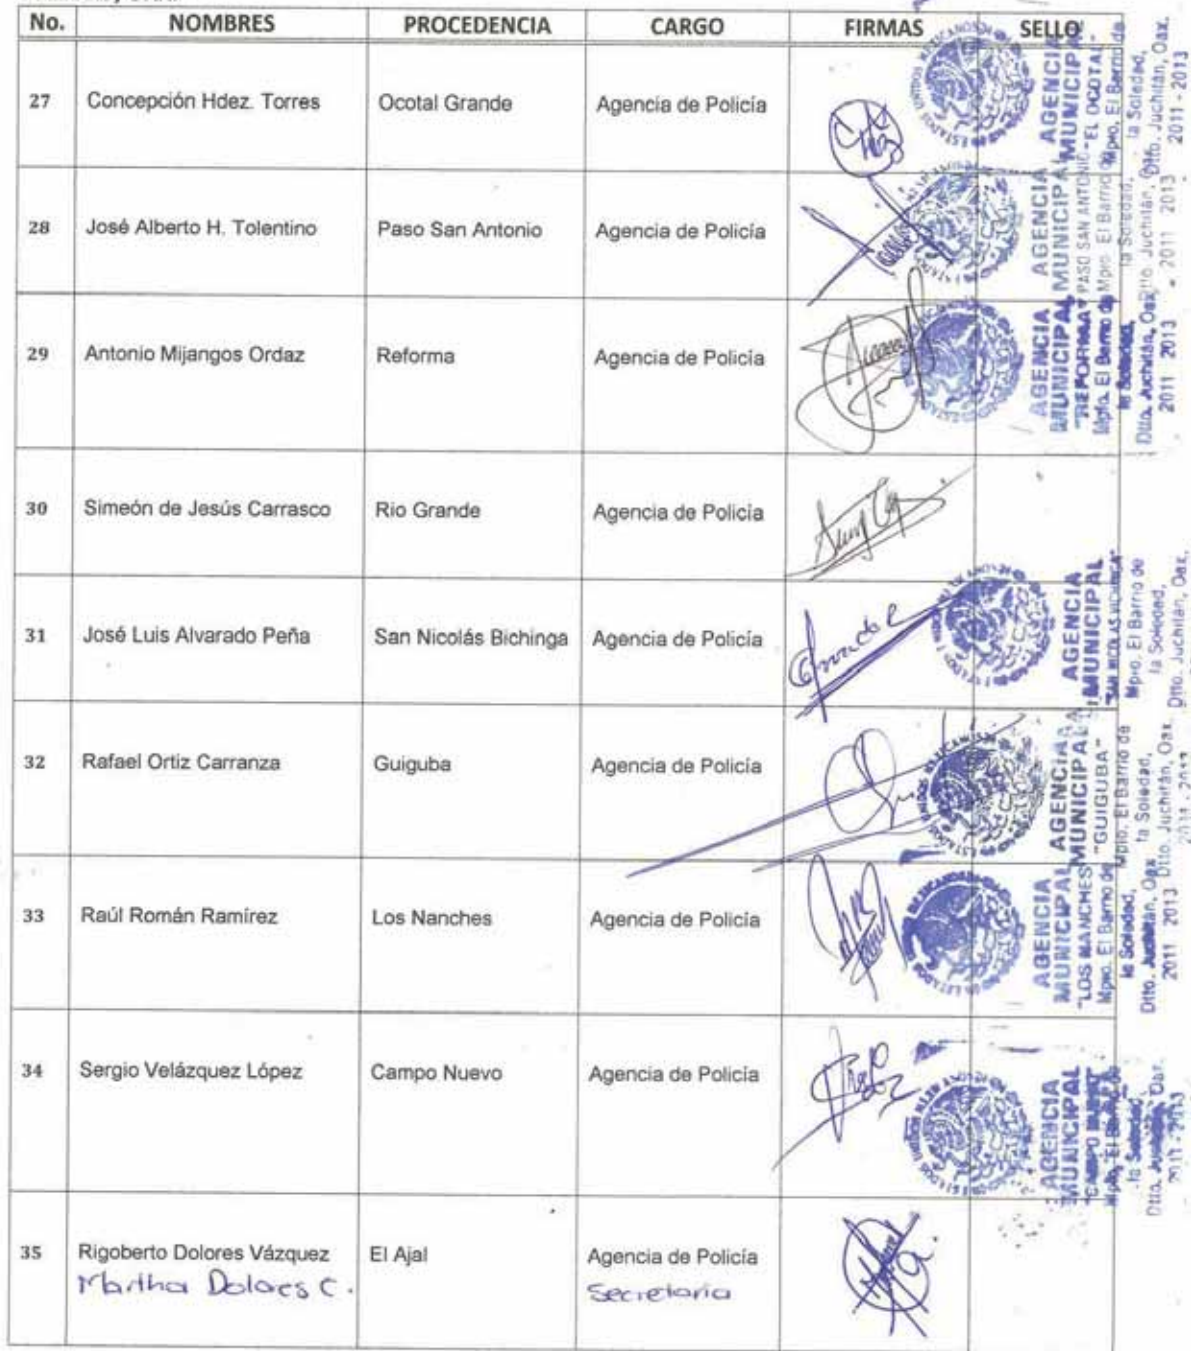 No. NOMBRES PROCEDENCIA CARGO FIRMAS SELLO
27 Concepción Hdez. Torres Ocotal Grande Agencia de Policía
AGENCIA
MUNICIPAL
"EL OCOTAL"
Mpio. El Barrio de
la Soledad,
Dtto. Juchitán, Oax.
2011 - 2013
28 José Alberto H. Tolentino Paso San Antonio Agencia de Policía
AGENCIA
MUNICIPAL
PASO SAN ANTONIO
Mpio. El Barrio de
la Soledad,
Dtto. Juchitán, Oax.
2011 2013
29 Antonio Mijangos Ordaz Reforma Agencia de Policía
AGENCIA
MUNICIPAL
"REFORMA"
Mpio. El Barrio de
la Soledad,
Dtto. Juchitán, Oax.
2011 2013
30 Simeón de Jesús Carrasco Rio Grande Agencia de Policía
31 José Luis Alvarado Peña San Nicolás Bichinga Agencia de Policía
AGENCIA
MUNICIPAL
Mpio. El Barrio de
la Soledad,
Dtto. Juchitán, Oax.
32 Rafael Ortiz Carranza Guiguba Agencia de Policía
AGENCIA
MUNICIPAL
"GUIGUBA"
Mpio. El Barrio de
la Soledad,
Dtto. Juchitán, Oax.
33 Raúl Román Ramírez Los Nanches Agencia de Policía
AGENCIA
MUNICIPAL
"LOS NANCHES"
Mpio. El Barrio de
la Soledad,
Dtto. Juchitán, Oax
2011 2013
34 Sergio Velázquez López Campo Nuevo Agencia de Policía
AGENCIA
MUNICIPAL
"CAMPO NUEVO"
Mpio. El Barrio de
la Soledad,
Dtto. Juchitán, Oax.
2011 - 2013
35 Rigoberto Dolores Vázquez El Ajal Agencia de Policía
Martha Dolores C. Secretaria